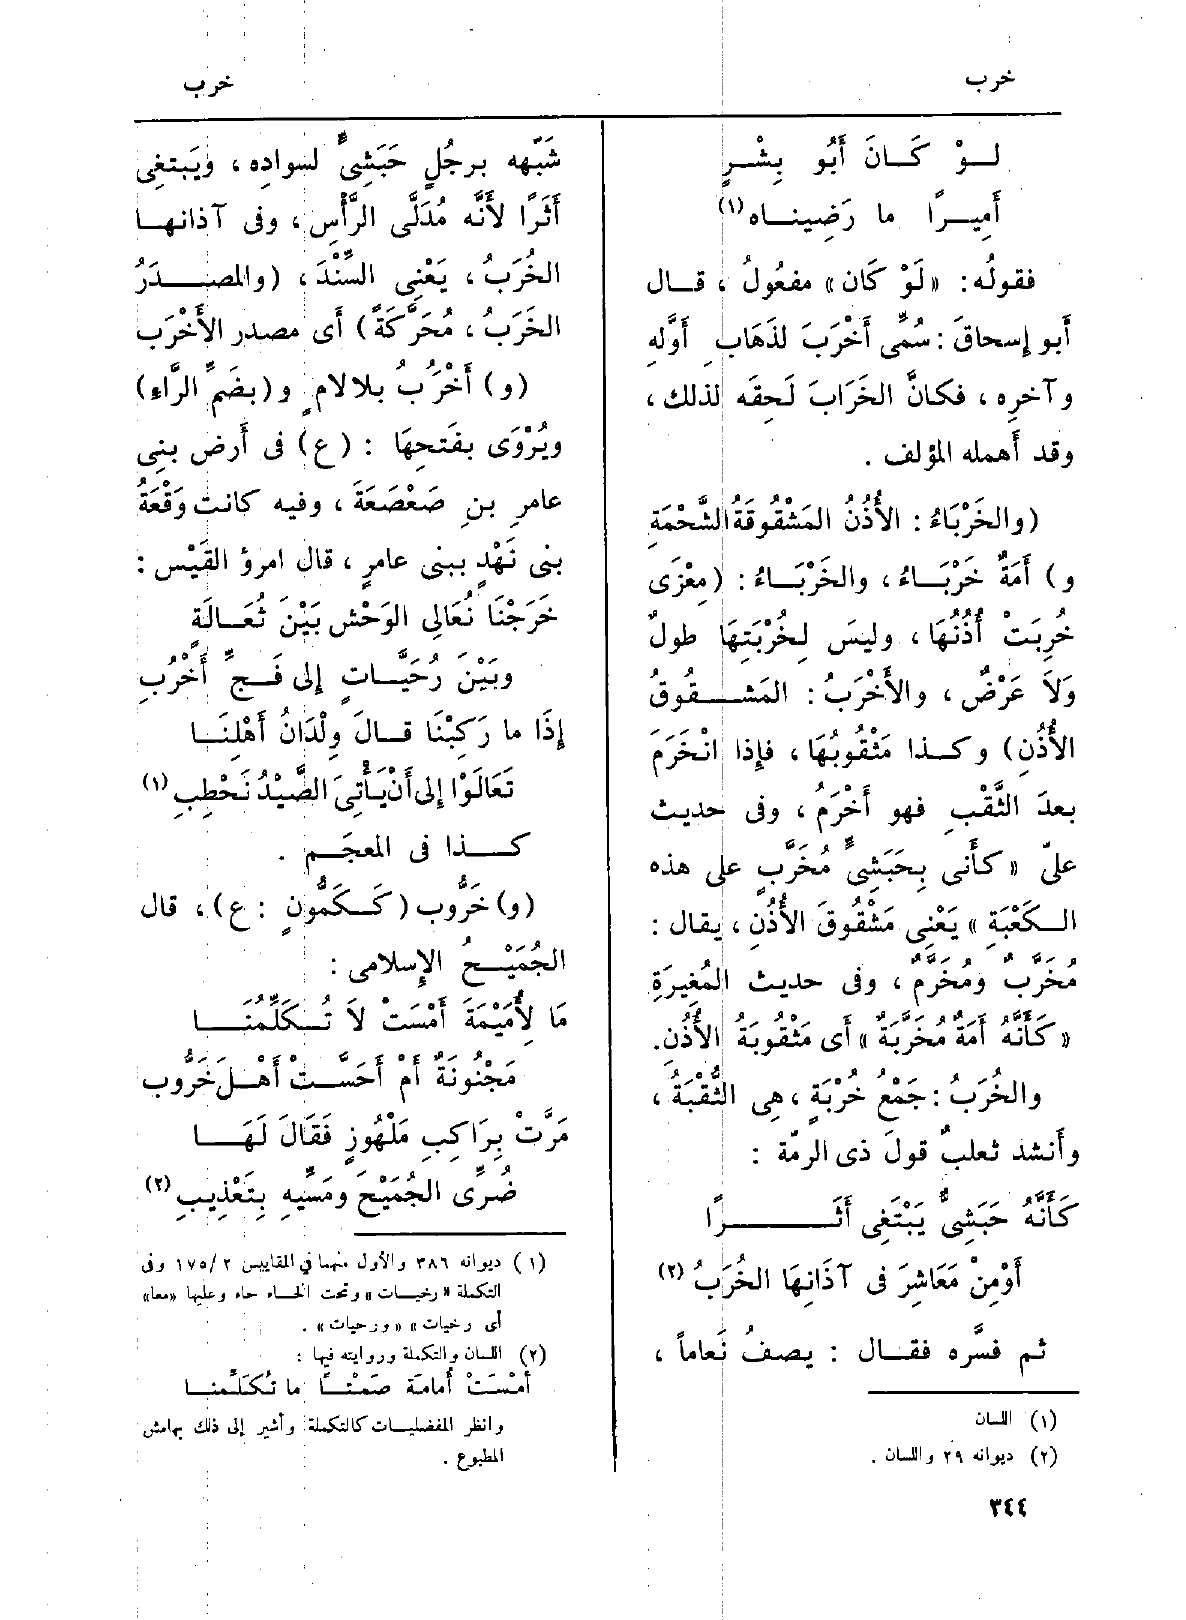 خرب
خرب
لـوْ كَـانَ أَبُو بِشْـرٍ
أَمِيـرًا ما رَضِينـاه (١)
فقولُه: «لَوْ كَان» مفعولُ ، قـال
أَبو إِسحاقَ : سُمِّى أَخْرَبَ لذَهَابِ أَوَّلهِ
وآخرِه ، فكانَّ الخَرَابَ لَحِقَه لذلك ،
وقد أَهمله المؤلف .
(والخَرْبَاءُ : الأُذُن المَشْقُوقَةُ الشَّحْمَةِ
و) أَمَةٌ خَرْبَـاءُ ، والخَرْبَـاءُ : (مِعْزَى
خُرِبَتْ أُذُنُهَا ، وليسَ لِخُرْبَتِهَا طولٌ
وَلاَ عَرْضٌ ، والأَخْرَبُ : المَشْـقُوقُ
الأُذُنِ) وكـذا مَثْقُوبُهَا ، فإِذا انْخَرَمَ
بعدَ الثَّقْبِ فهو أَخْرَمُ ، وفى حديث
علىّ « كأَنى بِحَبَشِىٍّ مُخَرَّبٍ على هذه
الـكَعْبَةِ » يَعْنِى مَشْقُوقَ الأُذُنِ ، يقال :
مُخَرَّبٌ ومُخَرَّمٌ ، وفى حديث المُغِيرَةِ
« كَأَنَّهُ أَمَةٌ مُخَرَّبَةٌ » أَى مَثْقُوبَةُ الأُذُن.
والخُرَبُ : جَمْعُ خُرْبَةٍ ، هى الثُّقْبَةُ ،
وأَنشد ثعلبٌ قولَ ذى الرمّة :
كَأَنَّهُ حَبَشِىٌّ يَبْتَغِى أَثَـــرًا
أَوْمِنْ مَعَاشِرَ فى آذَانِهَا الخُرَبُ (٢)
ثم فسَّره فقـال : يصفُ نَعاماً ،
(١) اللسان
(٢) ديوانه ٢٩ واللسان .
شَبَّهه برجُلٍ حَبَشِىٍّ لسوادِه ، ويَبتغِى
أَثَرًا لأَنَّه مُدَلَّى الرَّأْسِ ، وفى آذانهـا
الخُرَبُ ، يَعْنِى السِّنْدَ ، (والمصـدَرُ
الخَرَبُ ، مُحَرَّكَةً) أَى مصدر الأَخْرَب
(و) أَخْرُبُ بلالامٍ و(بضَمِّ الرَّاءِ)
ويُرْوَى بفَتحِهَا : (ع) فى أَرض بنِى
عامرِ بنِ صَعْصَعَةَ ، وفيه كانت وَقْعَةُ
بنى نَهْدٍ ببنى عامرٍ ، قال امرؤ القَيْس :
خَرَجْنَا نُعَالِى الوَحْش بَيْنَ ثُعَـالَةٍ
وبَيْنَ رُحَيَّـاتٍ إِلى فَـجِّ أَخْرُبِ
إِذَا ما رَكِبْنَا قـالَ وِلْدَانُ أَهْلِنَـا
تَعَالَوْا إِلى أَنْ يَأْتِىَ الصَّيْدُ نَحْطِبِ (١)
كـذا فى المعجَـم .
(و) خَرُّوب (كَـكَمُّونٍ : ع) ، قال
الجُمَيْـحُ الإِسلامى :
مَا لِأُمَيْمَةَ أَمْسَتْ لاَ تُـكَلِّمُنَـا
مَجْنُونَةٌ أَمْ أَحَسَّـتْ أَهْـلَ خَرُّوب
مَرَّتْ بِرَاكِبِ مَلْهُوزٍ فَقَالَ لَهَـا
ضُرِّى الجُمَيْحَ ومَسِّيهِ بِتَعْذِيبِ (٢)
(١) ديوانه ٣٨٦ والأول منهما فى المقاييس ٢ /١٧٥ وفى
التكملة « رخيات » وتحت الخاء حاء وعليها «معا»
أى رخيات » «ورحيات» .
(٢) اللسان والتكملة وروايته فيها :
أمْسَتْ أُمامَة صَمْتًـا ما تُكَلِّمنـا
وانظر المفضليات كالتكملة وأشير إلى ذلك بهامش
المطبوع .
٣٤٤